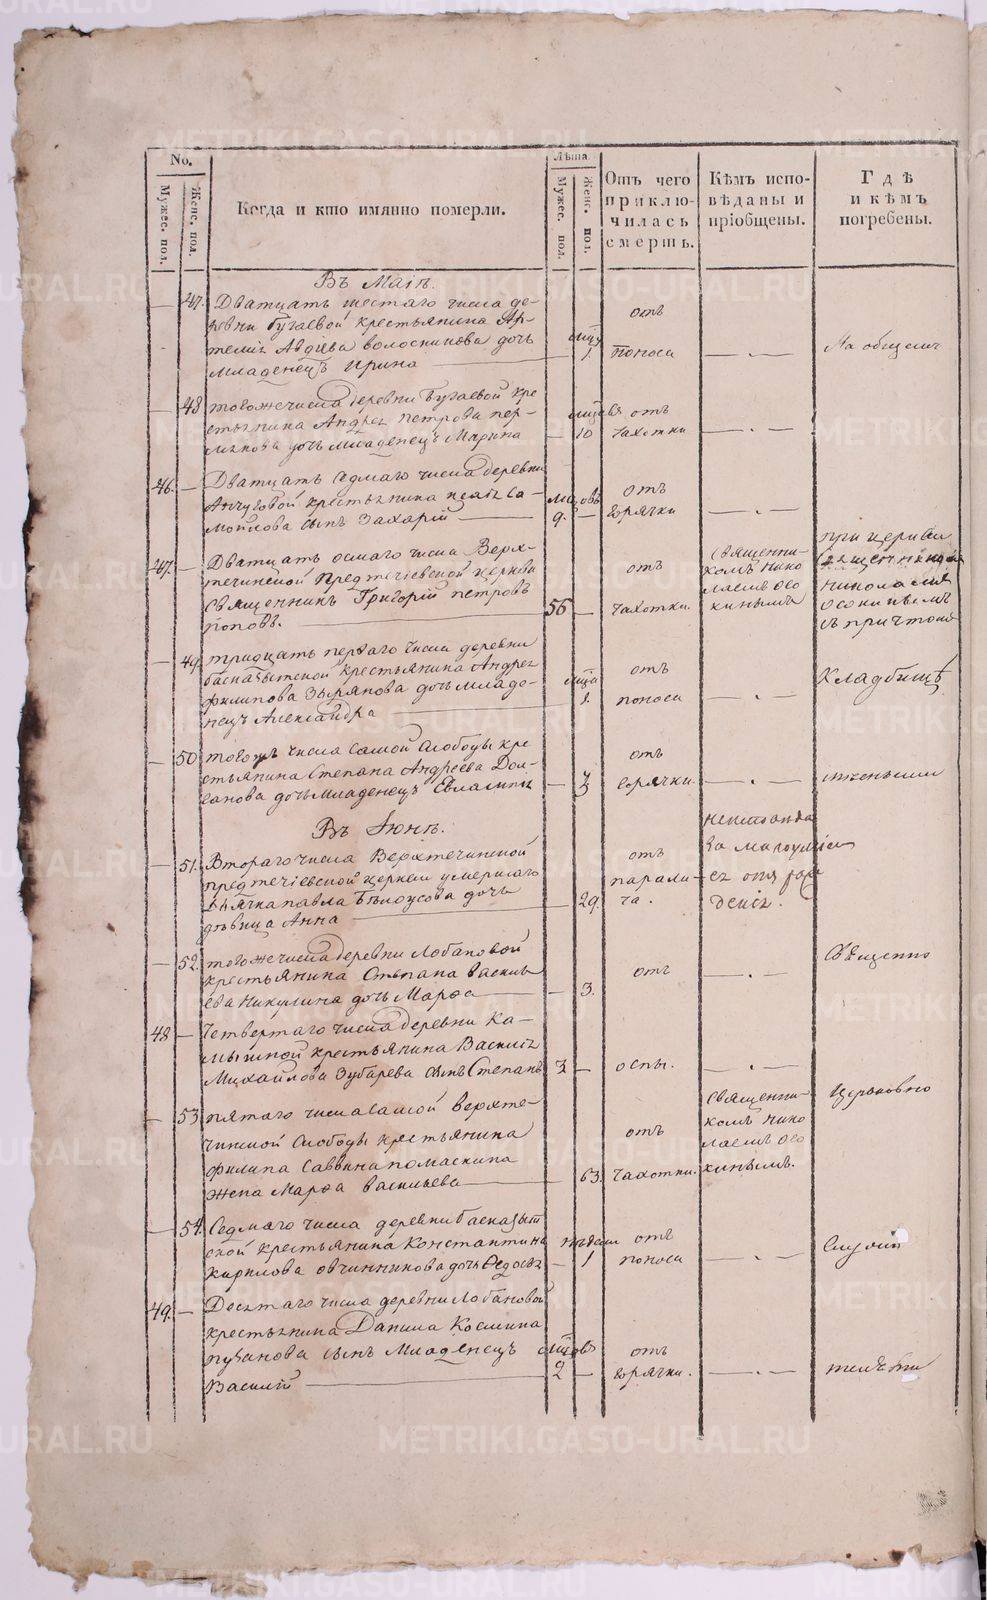 No.
Лѣта.
Мужес. пол.
Женс. пол.
Когда и кто имянно померли.
Мужес. пол.
Женс. пол.
Отъ чего приключилась смерть.
Кѣмъ исповѣданы и прiобщены.
Гдѣ и кѣмъ погребены.
Въ Маiѣ.
— 47. Дватцать шестаго числа де-
ревни Бугаевой крестьянина Ар-
темiя Авдѣева волосникова дочь
младенецъ Ирина — 1 отъ поноса — . — На общемъ
— 48 того же числа деревни Бугаевой кре-
стьянина Андрея Петрова пер-
мякова дочь младенецъ Марина — 10 отъ чахотки — . —
46. — Дватцать седмаго числа деревни
Анчуговой крестьянина Исаiя Са-
мойлова сынъ Захарiй — 9. — отъ горячки — . —
47. — Дватцать осмаго числа Верх-
течинской предтечiевской церкви
священникъ Григорiй Петровъ
Поповъ. — 56 — отъ чахотки. священни-
комъ Нико
лаемъ Осо
кинымъ
при церкви
священником
Николаемъ
Осокинымъ
съ причтомъ
— 49. тридцать перваго числа деревни
басказытской крестьянина Андрея
филипова Зырянова дочь младе-
нецъ Александра 1. отъ поноса — . — Кладбищѣ
— 50 тогожъ числа самой слободы кре
стьянина Степана Андреева Дол-
ганова дочь младенецъ Евлампiя — 3 отъ горячки — . —
Въ Iюнѣ.
— 51. Втораго числа Верхтечинской
предтечiевской церкви умершаго
дьячка павла Бѣлоусова дочь
дѣвица Анна — 29. отъ парали-
ча.
— 52. того же числа деревни Лобановой
крестьянина Степана Василь
ева Никулина дочь Марфа — 3. отъ — . — Священно
48 — Четвертаго числа деревни Ка-
мышной крестьянина Василiя
Михайлова Зубарева сынъ Степанъ 3 — оспы. — . —
— 53 пятаго числа самой верхте-
чинской слободы крестьянина
филипа Саввина помаскина
жена Марфа васильева — 63. отъ чахотки. священни-
комъ Нико
лаемъ Осо
кинымъ.
Церковно
— 54. Седмаго числа деревни басказыт
ской крестьянина Константина
кирилова овчинникова дочь Федосья — 1 отъ поноса — . — Служи
49. — Десятаго числа деревни Лобановой
крестьянина Данила Космина
пузанова сынъ младенецъ
Василiй — 2 — отъ горячки. — . —